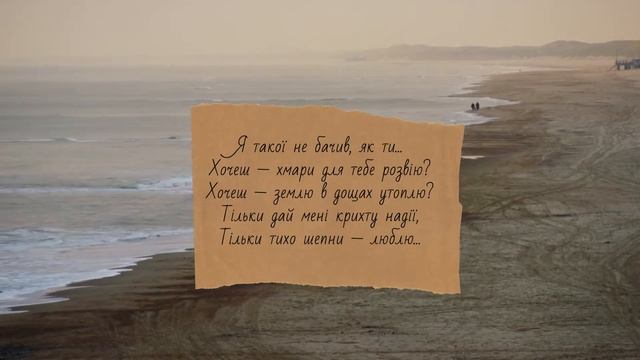 Я такої не бачив, як ти...
Хочеш — хмари для тебе розвію?
Хочеш — землю в дощах утоплю?
Тільки дай мені крихту надії,
Тільки тихо шепни — люблю...